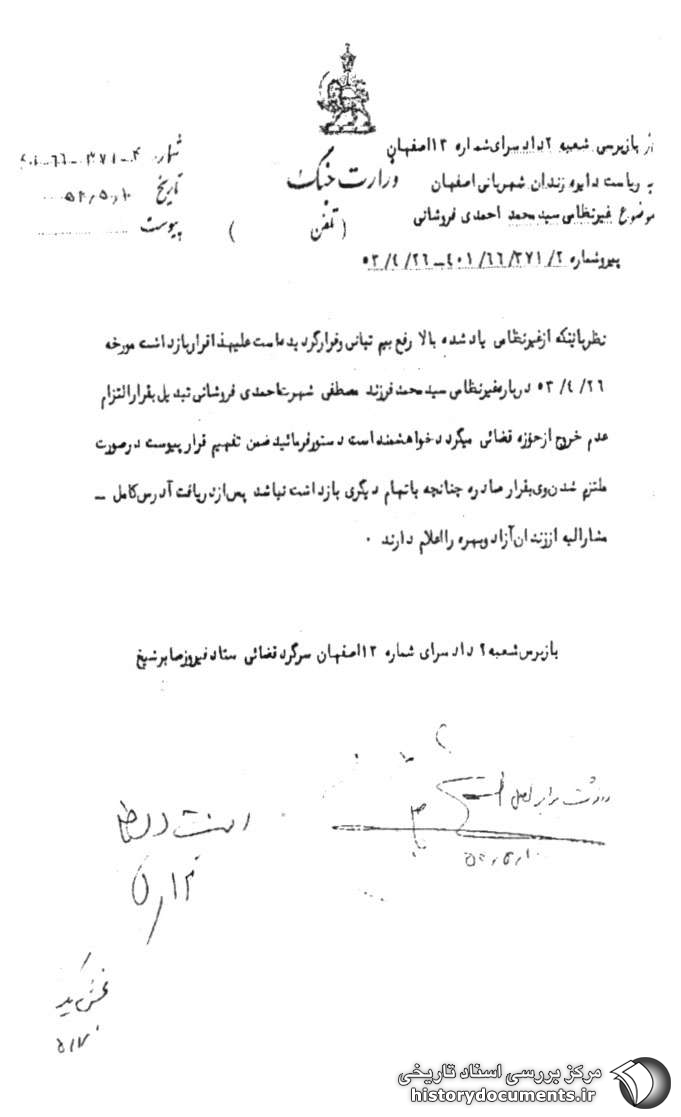 از بازپرسی شعبه ۲ دادسرای شماره ۱۲ اصفهان
به ریاست دایره زندان شهربانی اصفهان
موضوع غیرنظامی سید محمد احمدی فروشانی
وزارت جنگ
(تلفن )
شماره
تاریخ ۵۳٫۵٫۱۰
پیوست
پیرو شماره ۲/ ۳۷۱/ ۶۶/ ۴۰۱ــ ۲۶/ ۴/ ۵۳
نظر باینکه از غیرنظامی یاد شده بالا رفع بیم تبانی و فرار گردیده است علیهذا قرار بازداشت مورخه
۲۶/ ۴/ ۵۳ درباره غیرنظامی سید محمد فرزند مصطفی شهرت احمدی فروشانی تبدیل بقرار التزام
عدم خروج از حوزه قضائی میگردد خواهشمند است دستور فرمائید ضمن تفهیم قرار پیوست در صورت
ملتزم شدن وی بقرار صادره چنانچه باتهام دیگری بازداشت نباشد پس از دریافت آدرس کامل ــ
مشارالیه از زندان آزاد و بهره را اعلام دارند ۰
بازپرس شعبه ۲ دادسرای شماره ۱۲ اصفهان سرگرد قضائی ستاد فیروز صابر شیخ
رونوشت برابر اصل است
۵٫۱۲
مرکز بررسی اسناد تاریخی
historydocuments.ir